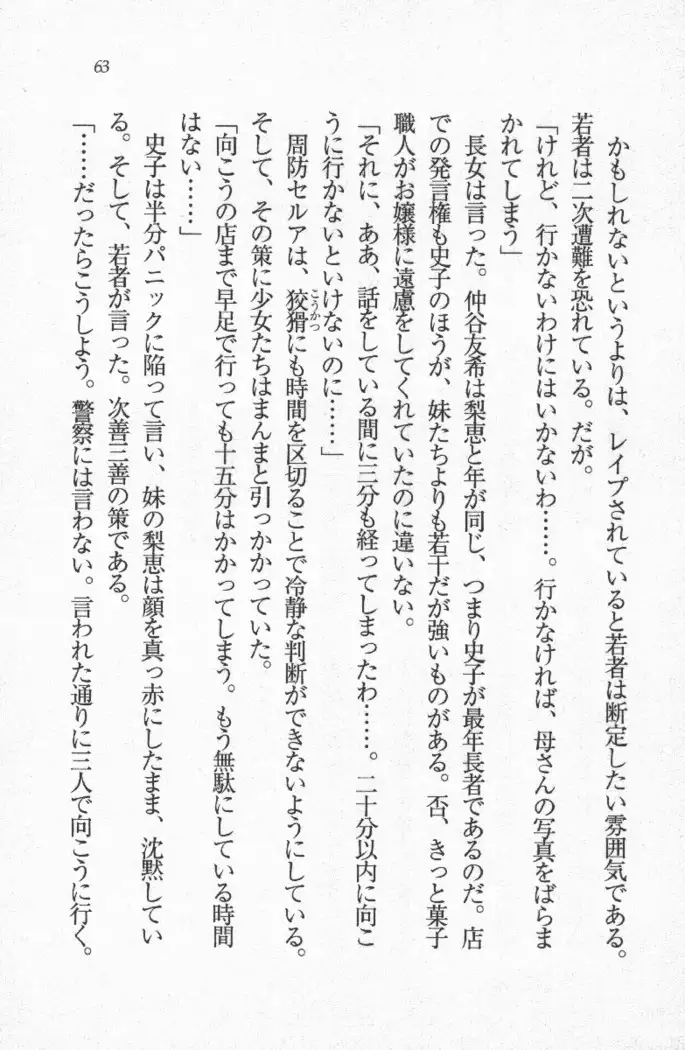 63
かもしれないというよりは、レイプされていると若者は断定したい雰囲気である。
若者は二次遭難を恐れている。だが。
「けれど、行かないわけにはいかないわ……。行かなければ、母さんの写真をばらま
かれてしまう」
長女は言った。仲谷友希は梨恵と年が同じ、つまり史子が最年長者であるのだ。店
での発言権も史子のほうが、妹たちよりも若干だが強いものがある。否、きっと菓子
職人がお嬢様に遠慮をしてくれていたのに違いない。
「それに、ああ、話をしている間に三分も経ってしまったわ……。二十分以内に向こ
うに行かないといけないのに……」
周防セルアは、狡猾にも時間を区切ることで冷静な判断ができないようにしている。
こうかつ
そして、その策に少女たちはまんまと引っかかっていた。
「向こうの店まで早足で行っても十五分はかかってしまう。もう無駄にしている時間
はない……」
史子は半分パニックに陥って言い、妹の梨恵は顔を真っ赤にしたまま、沈黙してい
る。そして、若者が言った。次善三善の策である。
「……だったらこうしよう。警察には言わない。言われた通りに三人で向こうに行く。